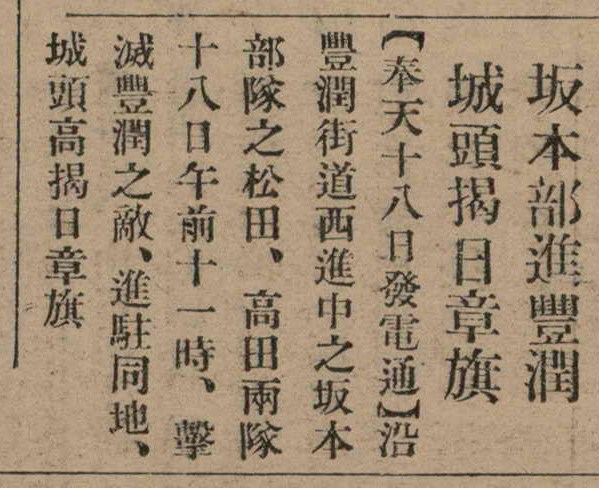 坂本部進豐潤
城頭揭日章旗
【奉天十八日發電通】沿
豐潤街道西進中之坂本
部隊之松田、高田兩隊
十八日午前十一時、擊
滅豐潤之敵、進駐同地、
城頭高揭日章旗